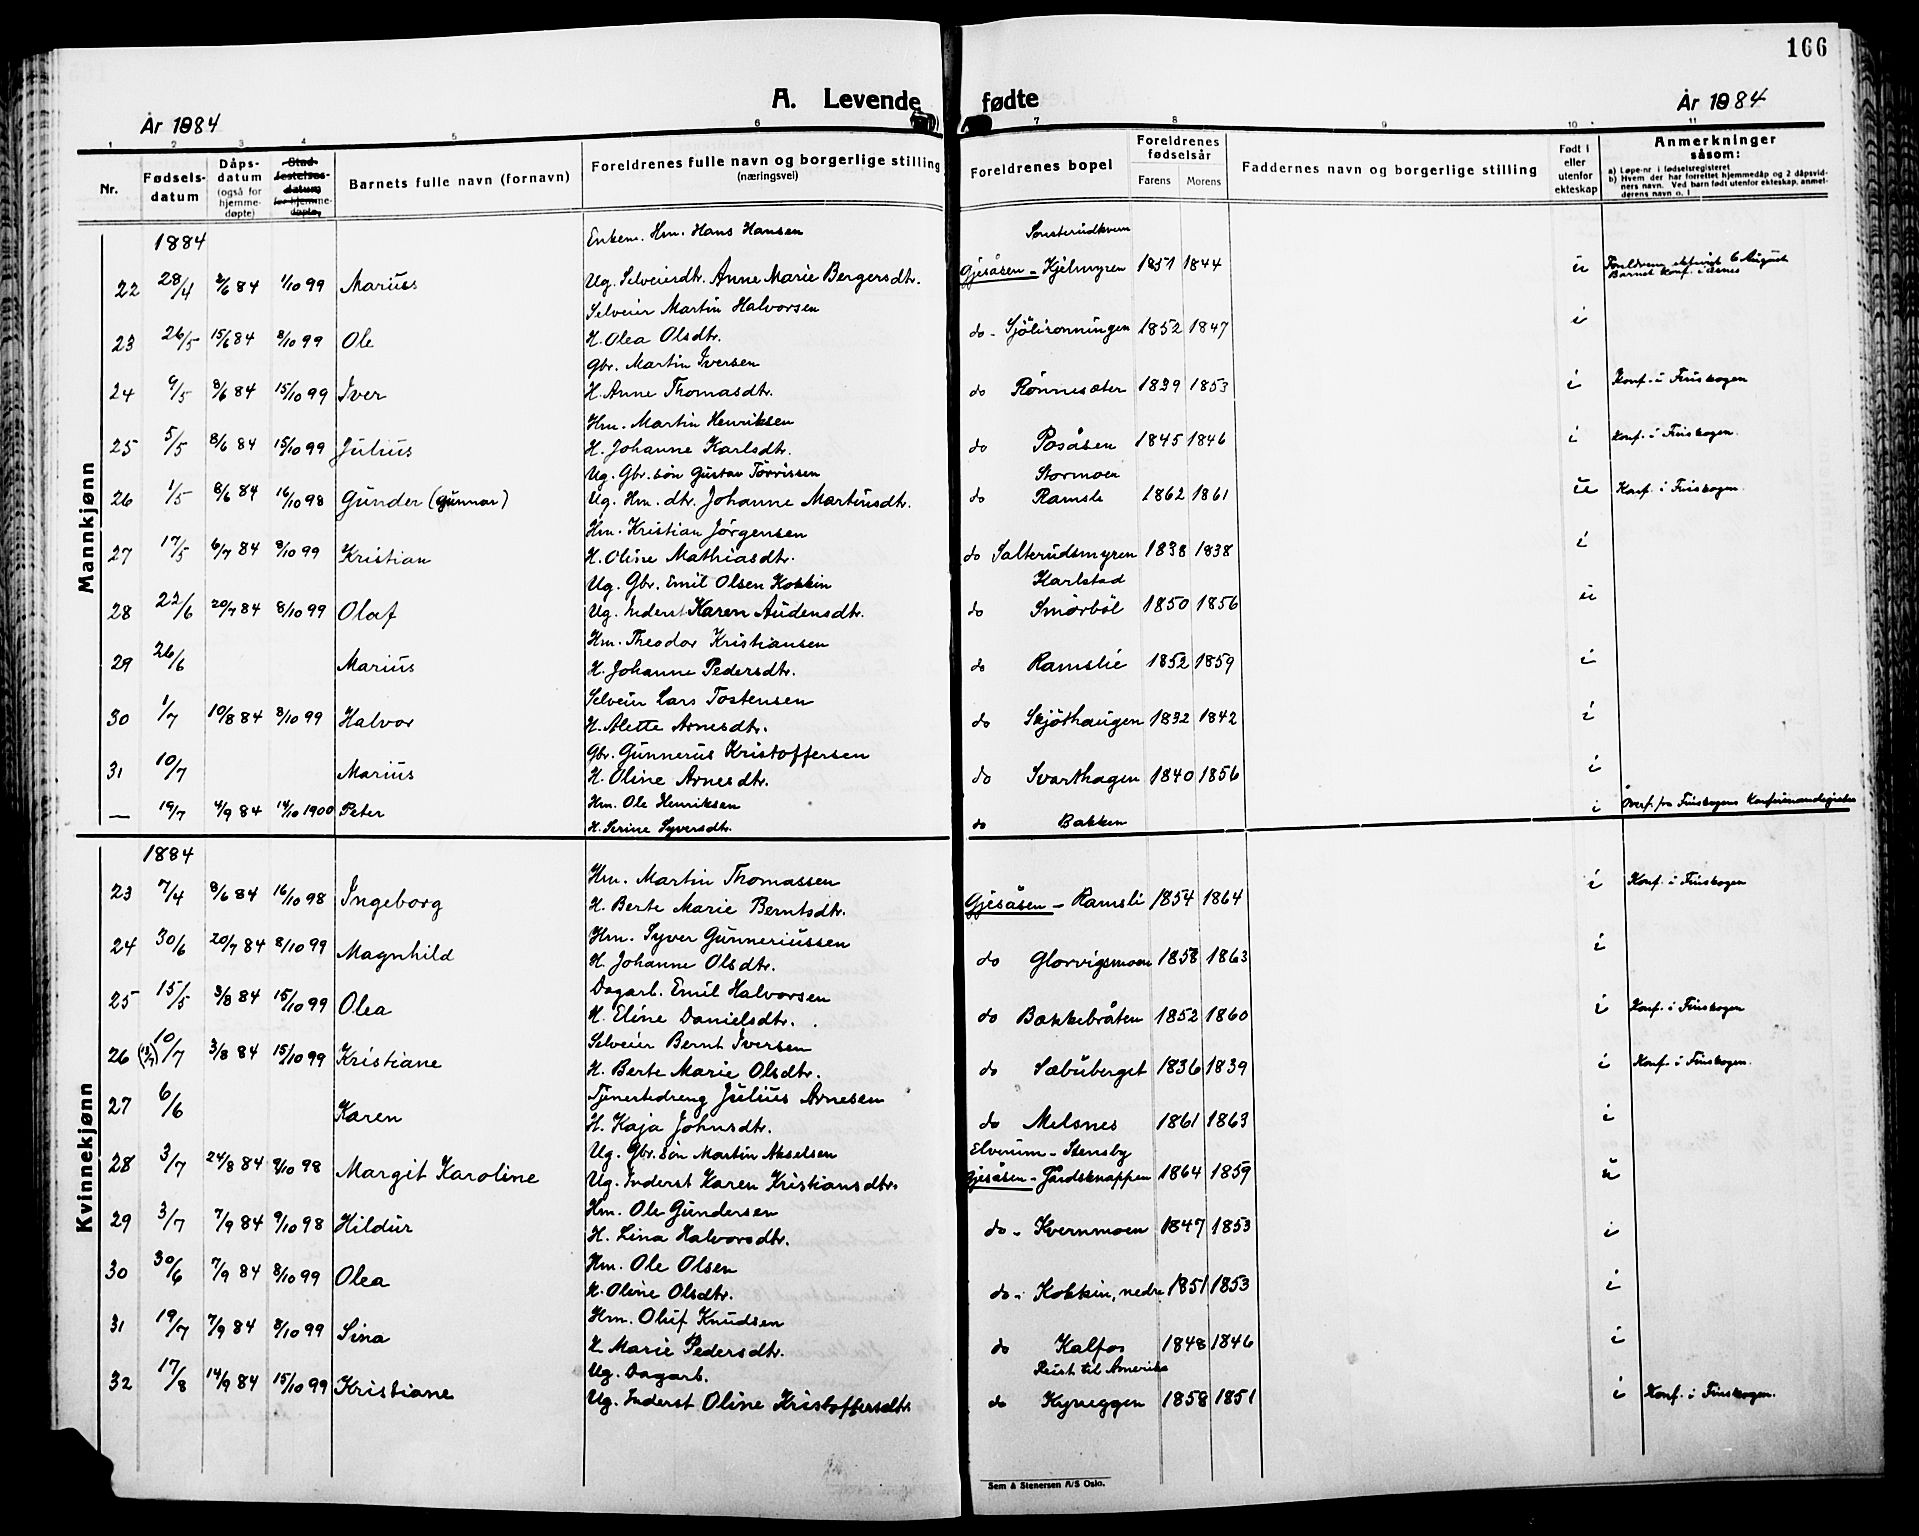 166
A. Levende fødte
År 1884
År 1884
1 2 3 4 5 6 7 8 9 10 11
Nr.
Fødsels-
datum
Dåps-
datum
(også for
hjemme-
døpte)
Stad-
festelses-
datum
for hjemme-
døpte.
Barnets fulle navn (fornavn)
Foreldrenes fulle navn og borgerlige stilling
(næringsvei)
Foreldrenes bopel
Foreldrenes
fødselsår
Farens
Morens
Faddernes navn og borgerlige stilling
Født i
eller
utenfor
ekteskap
Anmerkninger
såsom:
a) Løpe-nr i fødselsregisteret
b) Hvem der har forrettet hjemmedåp og 2 dåpsvid-
ners navn. Ved barn født utenfor ekteskap, anmel-
derens navn o. l
Mannkjønn
1884
Enkem. Hm. Hans Hansen Sonsterudkvern
22 28/4 2/6 84 1/10 99 Marius Ug. Selveierdtr. Anne Marie Bergersdtr. Gjesåsen - Kjelmyren 1851 1844 u
Barnet konf. i Åsnes
Selveier Martin Halvorsen
23 26/5 15/6 84 8/10 99 Ole H. Olea Olsdtr. do - Sjölironningen 1852 1847 i
Gbr. Martin Iversen
24 9/5 8/6 84 15/10 99 Iver H. Anne Thomasdtr. do Rønnesæter 1839 1853 i Konf. i Finskogen
Hm. Martin Henriksen
25 5/5 8/6 84 15/10 99 Julius H. Johanne Karlsdtr. do Posåsen 1845 1846 i Konf. i Finskogen.
Ug. Gbr. søn Gustav Torrissen Stormoen
26 1/5 8/6 84 16/10 98 Gunder (Gunnar) Ug. Hm. dtr. Johanne Martinsdtr. do Ramsli 1862 1861 u Konf. i Finskogen.
Hm. Kristian Jørgensen
27 17/5 6/7 84 8/10 99 Kristian H. Oline Mathiasdtr. do Salterudsmyren 1838 1838 i
Ug. Gbr. Emil Olsen Kokkin Karlstad
28 22/6 20/7 84 8/10 99 Olaf Ug. Inderst Karen Audensdtr. do Smørbøl 1850 1856 u
Hm. Theodor Kristiansen
29 26/6 Marius H. Johanne Pedersdtr. do Ramslie 1852 1859 i
Selveier Lars Tostensen
30 1/7 10/8 84 8/10 99 Halvor H. Alette Arnesdtr. do Skjøthaugen 1832 1842 i
Gbr. Gunnerus Kristoffersen
31 10/7 Marius H. Oline Arnesdtr. do Svarthagen 1840 1856 i
— 19/7 4/9 84 14/10 1900 Peter Hm. Ole Henriksen i Overf. fra Finskogens Konfirmandregister
H. Serine Syversdtr. do Bakken
Kvinnekjønn
1884
Hm. Martin Thomassen
23 7/4 8/6 84 16/10 98 Ingeborg H. Berte Marie Berntsdtr. Gjesåsen - Ramsli 1854 1864 i Konf. i Finskogen
Hm. Syver Gunneriussen
24 30/6 20/7 84 8/10 99 Magnhild H. Johanne Olsdtr. do Glorvigsmoen 1858 1863 i
Dagarb. Emil Halvorsen
25 15/5 3/8 84 15/10 99 Olea H. Eline Danielsdtr. do Bakkebråten 1852 1860 i Konf. i Finskogen
Selveier Bernt Iversen
26 10/7 3/8 84 15/10 99 Kristiane H. Berte Marie Olsdtr. do Sæbuberget 1836 1839 i Konf. i Finskogen.
Tjenestedreng Julius Arnesen
27 6/6 Karen H. Kaja Johnsdtr. do Melsnes 1861 1863 i
Ug. Gbr. søn Martin Akselsen Elverum - Stensby
28 3/7 24/8 84 9/10 98 Margit Karoline Ug. Inderst Karen Kristiansdtr. Gjesåsen - Gårdsknappen 1864 1859 u
Hm. Ole Gundersen
29 3/7 7/9 84 9/10 98 Hildur H. Lina Halvorsdtr. do - Kvernmoen 1847 1853 i
Hm. Ole Olsen
30 30/6 7/9 84 8/10 99 Olea H. Oline Olsdtr. do - Kokkin, nedre 1851 1853 i
Hm. Oluf Knudsen
31 19/7 7/9 84 8/10 99 Sina H. Marie Pedersdtr. do Kalfos 1848 1846 i
Ug. Dagarb. Reist til Amerika
32 17/8 14/9 84 15/10 99 Kristiane Ug. Inderst Oline Kristoffersdtr. do Kyneggen 1858 1851 i Konf. i Finskogen.
Sem & Stenersen A/S Oslo.